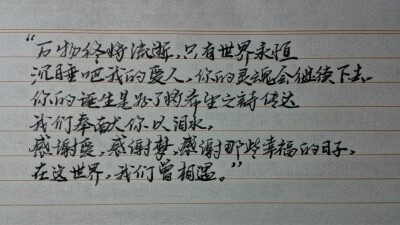 “万物终将流逝，只有世界永恒
沉睡吧我的爱人，你的灵魂会继续下去。
你的诞生是为了将希望之诗传达
我们奉献你以泪水，
感谢爱，感谢梦，感谢那些幸福的日子，
在这世界，我们曾相遇。”